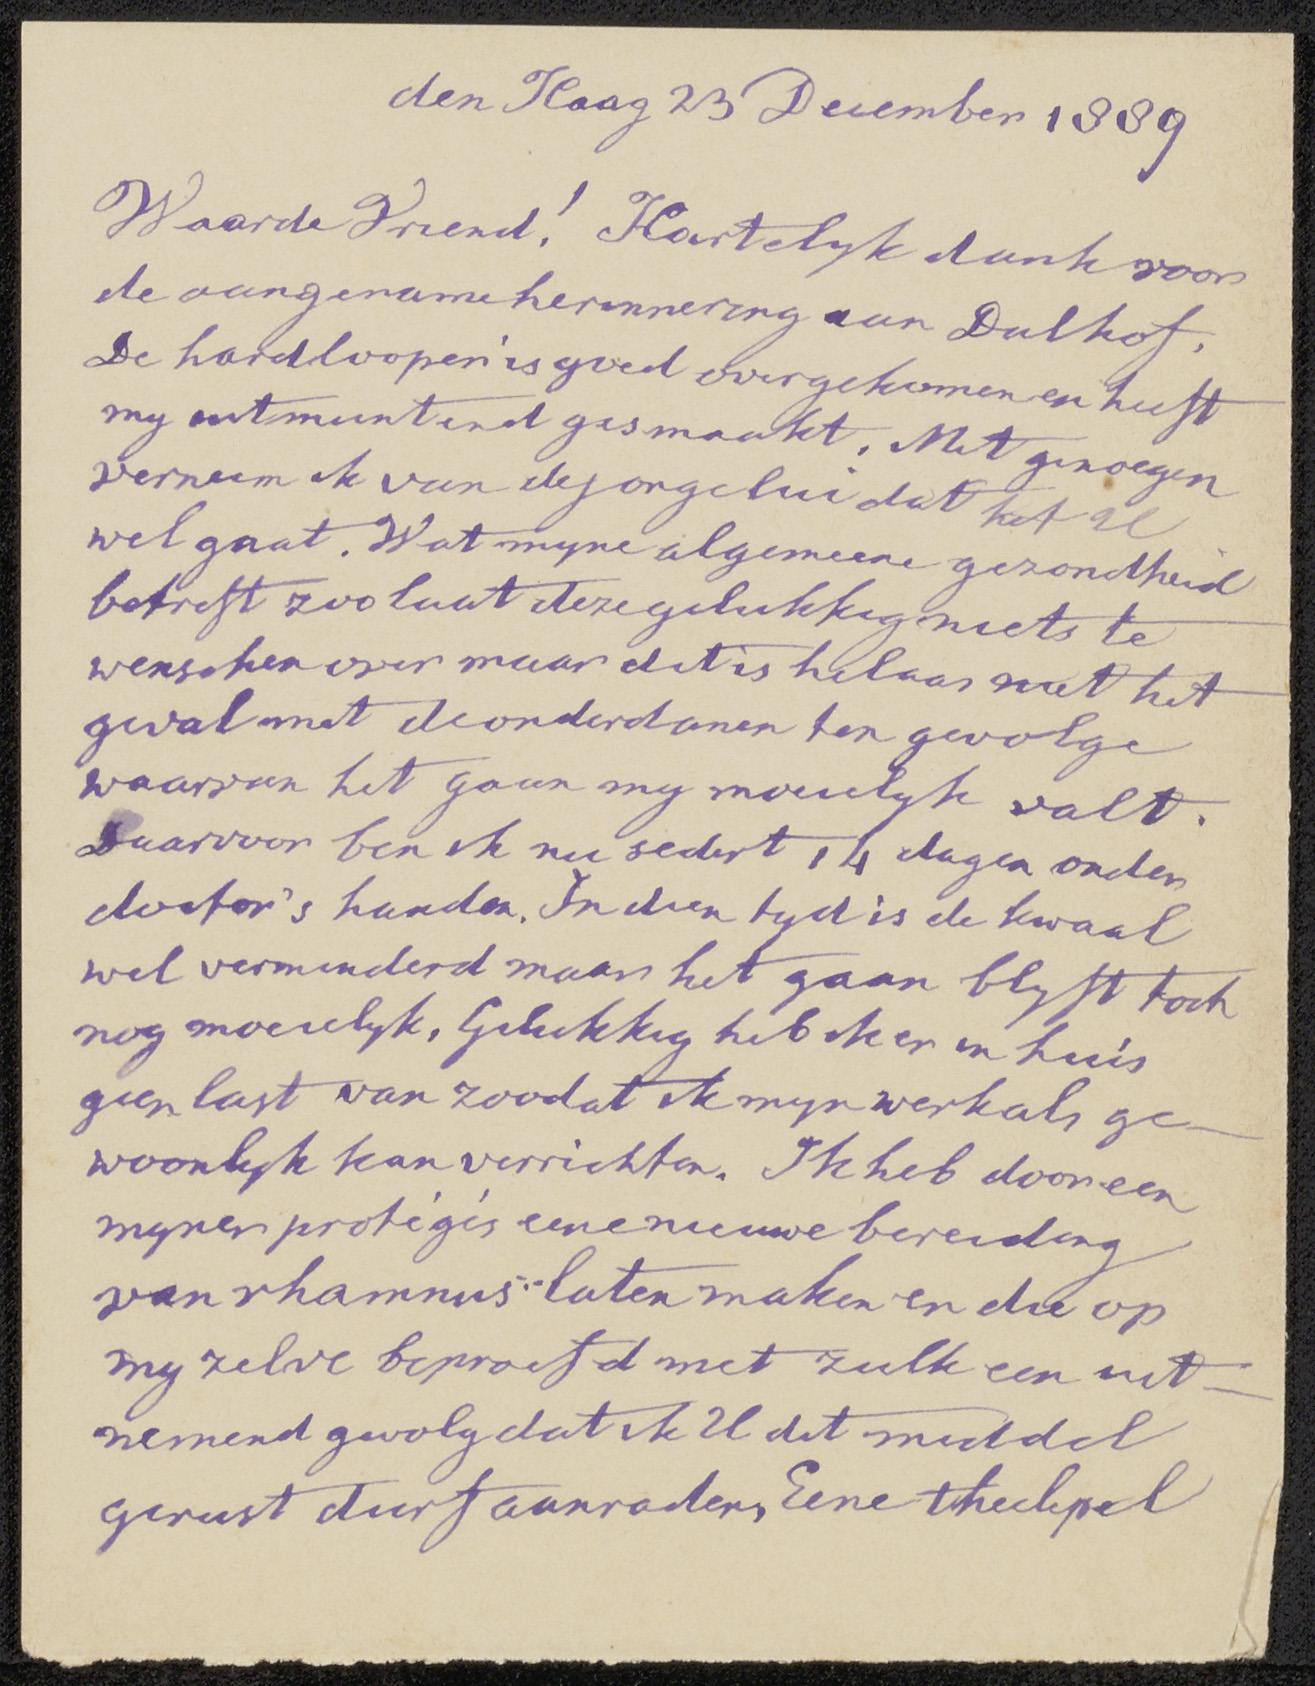 den Haag 23 December 1889
Waarde Vriend! Hartelyk dank voor
de aangename herinnering aan Dalhof.
De hardlooper is goed overgekomen en heeft
my uitmuntend gesmaakt. Met genoegen
verneem ik van de jongelui dat het U
wel gaat. Wat myne algemeene gezondheid
betreft zoo laat deze gelukkig niets te
wenschen over maar dit is helaas niet het
geval met de onderdanen ten gevolge
waarvan het gaan my moeielyk valt.
Daarvoor ben ik nu sedert 14 dagen onder
doctor's handen. In dien tyd is de kwaal
wel verminderd maar het gaan blyft toch
nog moeielyk. Gelukkig heb ik er in huis
geen last van zoodat ik myn werk als ge-
woonlyk kan verrichten. Ik heb door een
myner protégés eene nieuwe bereiding
van rhamnus laten maken en die op
my zelve beproefd met zulk een uit-
nemend gevolg dat ik U dit middel
gerust durf aanraden. Eene theelepel